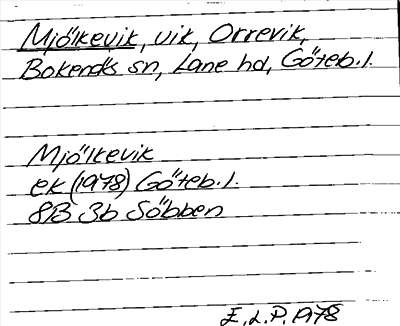 Mjölkevik, vik, Orrevik,
Bokenäs sn, Lane hd, Göteb. l.
Mjölkevik
ek (1978) Göteb. l.
8B 3b Söbben
E. L. P. 1978